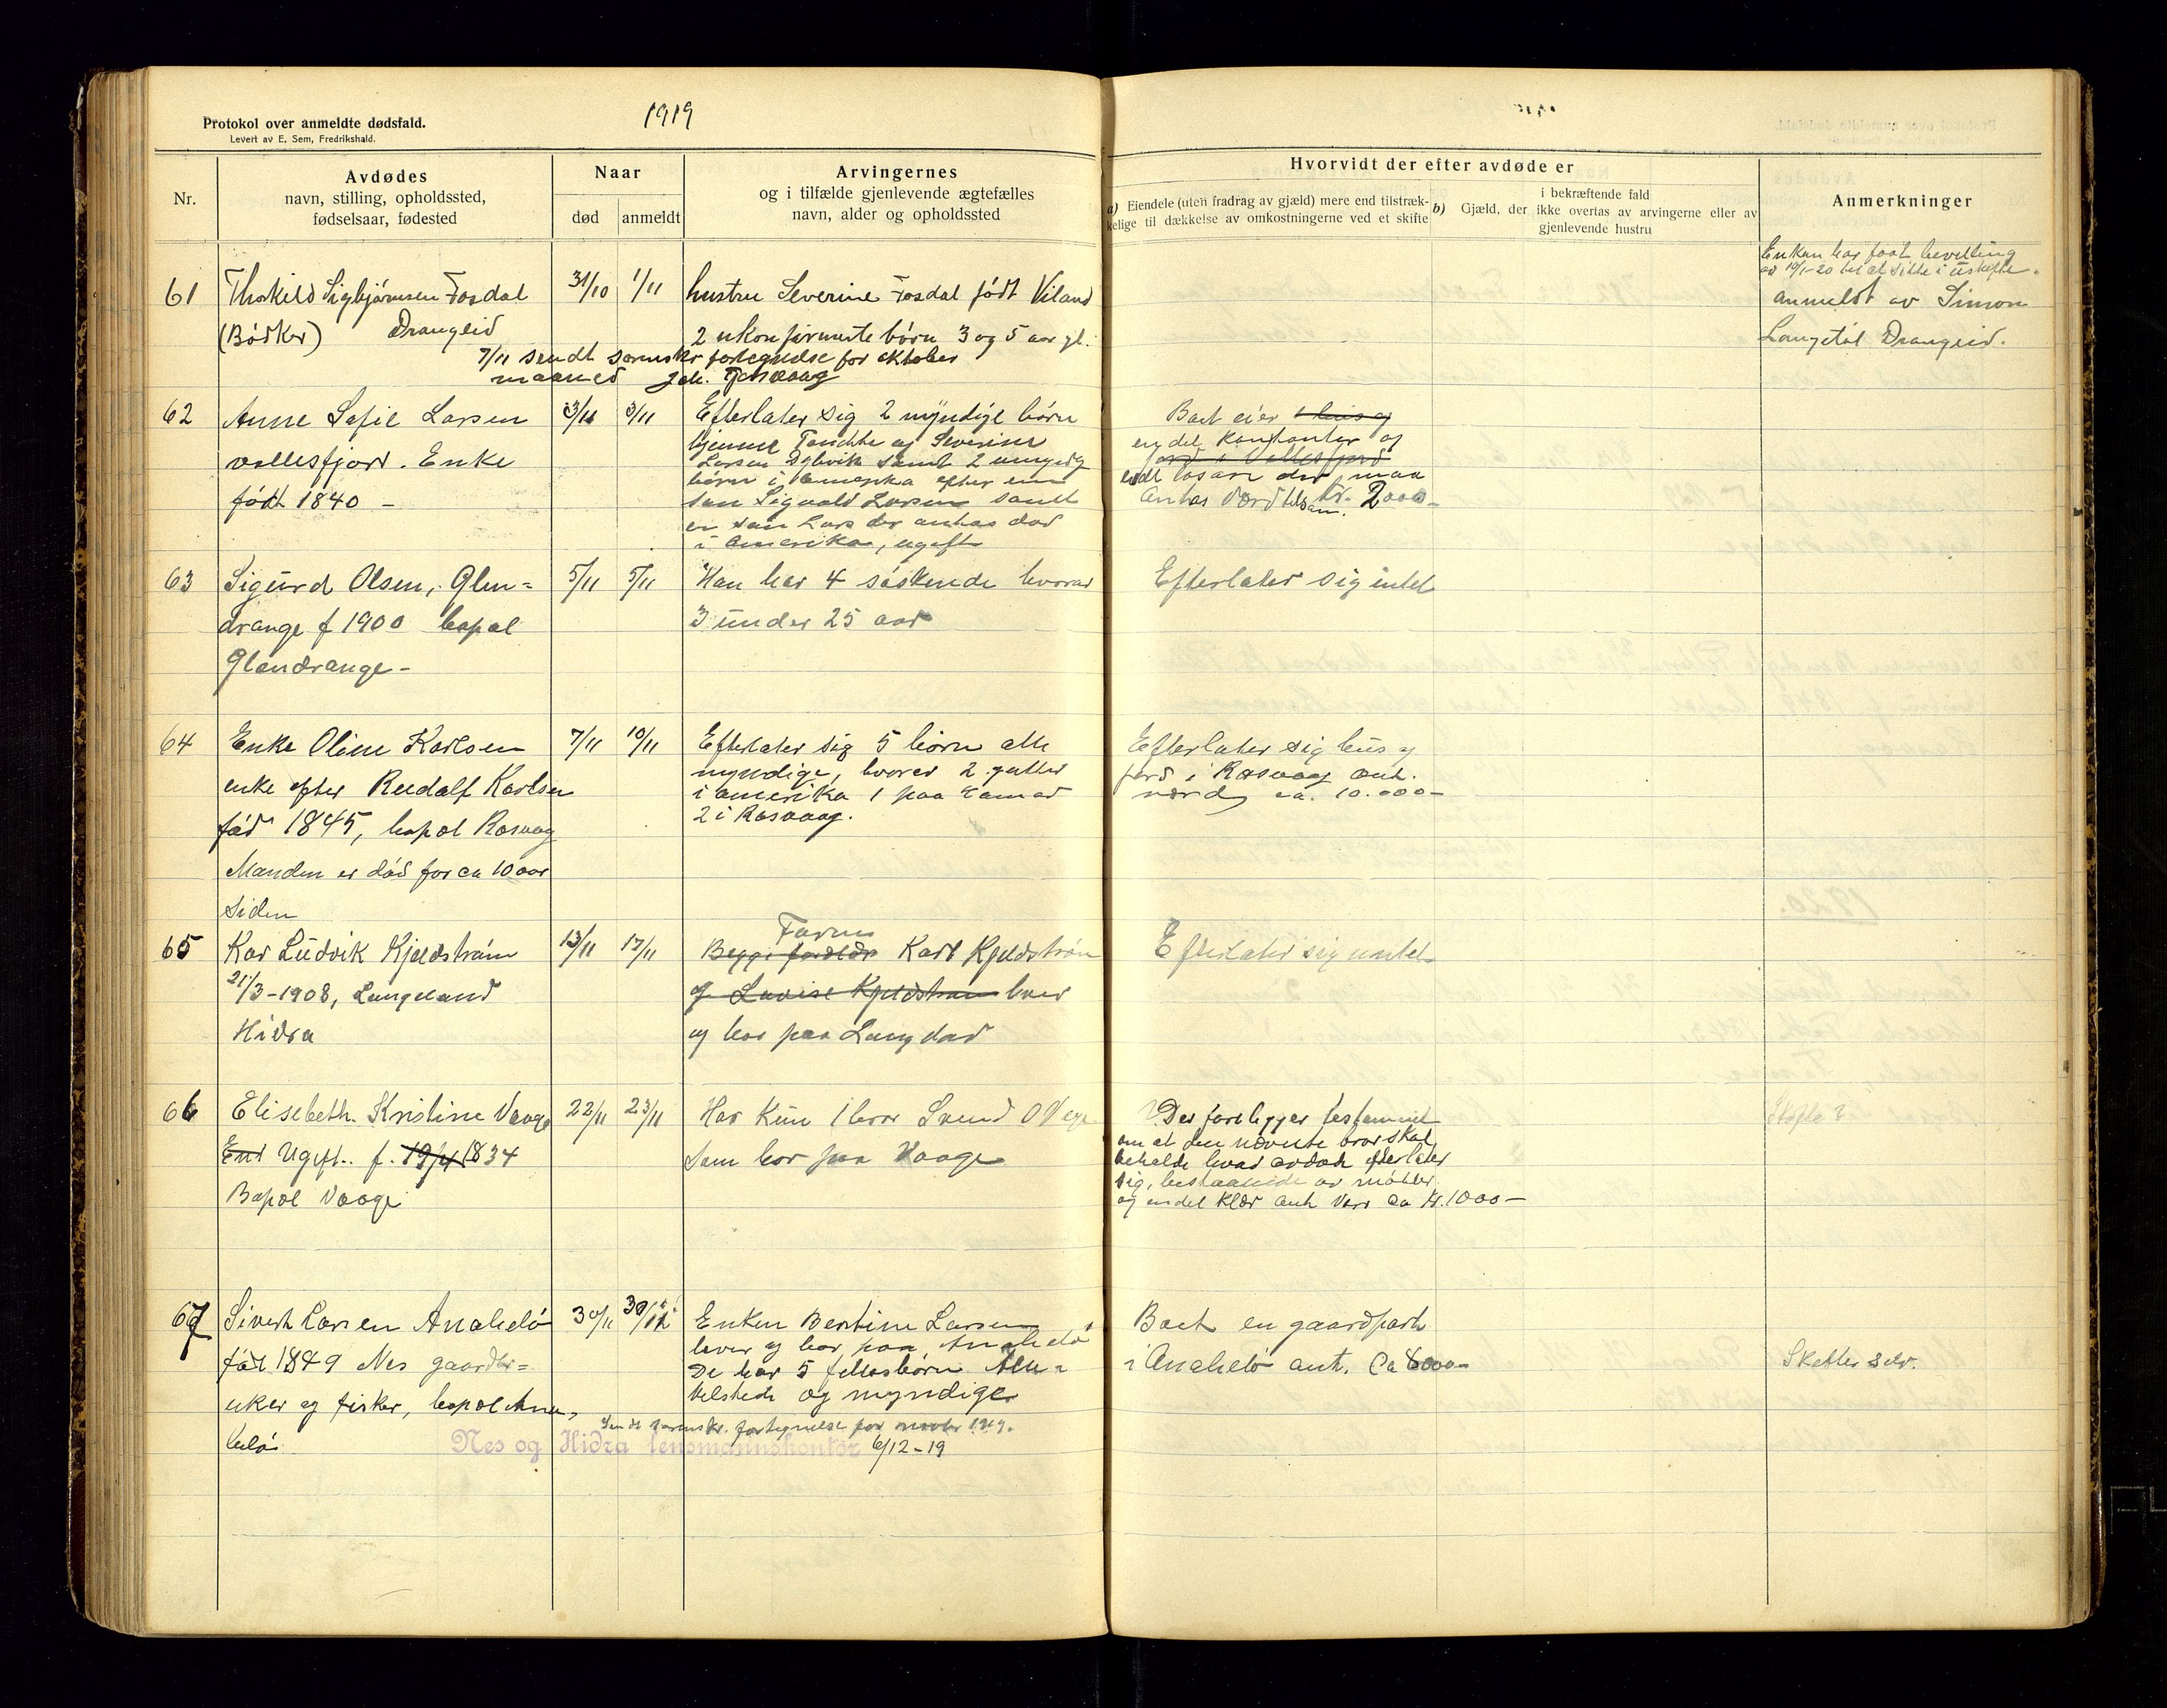 1919
Protokol over anmeldte dødsfald.
Levert av E. Sem, Fredrikshald.
Nr.
Avdødes
navn, stilling, opholdssted,
fødselsaar, fødested
Naar
død
anmeldt
Arvingernes
og i tilfælde gjenlevende ægtefælles
navn, alder og opholdssted
Hvorvidt der efter avdøde er
a) Eiendele (uten fradrag av gjæld) mere end tilstræk-
kelige til dækkelse av omkostningerne ved et skifte
b) Gjæld, der
i bekræftende fald
ikke overtas av arvingerne eller av
gjenlevende hustru
Anmerkninger
61
Thokild Sigbjørnsen Fosdal
(Bødker) Drangeid
31/10
1/11
hustru Severine Fosdal født Viland
2 ukonfirmerte børn 3 og 5 aar gl.
Enken har faat bevilling
av 19/1-20 til at sitte i uskifte.
Anmeldt av Simon
Langetøl Drangeid.
7/11 sendt sorenskr fortegnelse for oktober
maaned
62
Anne Sofie Larsen
vollesfjord. Enke
født 1840 -
3/11
3/11
Efterlater sig 2 myndige børn
hjemme og Severine
Larsen samt 2 umyndig
børn i Amerika efter en
søn Sigvald Larsen samt
en søn Lars der antas død
i Amerika, ugift
Boet eier hus og
en del kontanter og
jord i Vollesfjord
endel løsøre der maa
antas værd tilsam. kr. 2000-
63
Sigurd Olsen, Glen-
drange f 1900 bopæl
Glendrange-
5/11
5/11
Han har 4 søskende hvorav
3 under 25 aar
Efterlater sig intet
64
Enke Oline Karlsen
enke efter Rudolf Karlsen
fød 1845, bopel Rasvaag
Manden er død for ca 10 aar
siden
7/11
10/11
Efterlater sig 5 børn alle
myndige, hvorav 2 gutter
i Amerika 1 paa
2 i Rasvaag.
Efterlater sig hus og
jord i Rasvaag ant.
værd ca. 10.000-
65
Kar Ludvik Kjeldstrøm
21/3-1908, Langeland
Hidra
13/11
17/11
Faren
Begge forældr Karl Kjeldstrøm
og Lovise Kjeldstrøm lever
og bor paa
Efterlater sig intet
66
Elisebeth Kristine Vaage
Enk Ugift. f. 19/4 1834
Bopæl Vaage
22/11
23/11
Har kun 1 bror Svend O Vage
som bor paa Vaage
Der foreligger testament
om at den nævnte bror skal
beholde hvad avdøde efterlater
sig, bestaaende av møbler
og endel klær ant verd ca kr. 1000-
Skifte?
67
Sivert Larsen Anabeló
fød 1849 Nes gaardbr-
uker og fisker, bopæl Ana-
beló
30/11
30/11
Enken Bertine Larsen
lever og bor paa Anabeló
De har 5 fellesbørn Alle
tilstede og myndige
Boet en gaardpart
i Anabelø ant. Ca 6000-
Skifter selv.
Sendt sorenskr. fortegnelse for novbr 1919.
Nes og Hidra lensmannskontor 6/12-19